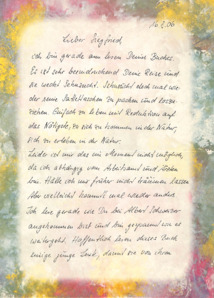 Lieber Siegfried
ich bin gerade am Lesen Deines Buches.
Es ist sehr beeindruckend Deine Reise und
sie weckt Sehnsucht. Sehnsucht auch mal wie-
der seine Satteltaschen zu packen und loszu-
fahren. Einfach so leben mit Reduktion auf
das Nötigste, zu sich zu kommen in der Natur,
sich zu erleben in der Natur.
Leider ist mir das im Moment nicht möglich,
da ich abhängig vom Arbeitsamt und
bin. Hätte ich mir früher nicht träumen lassen.
Aber vielleicht kommt mal wieder anders
Ich lese gerade wie Du bei
angekommen bist und bin gespannt wie es
weitergeht. Hoffentlich lesen dieses Buch
einige junge Leute, damit sie von ihren